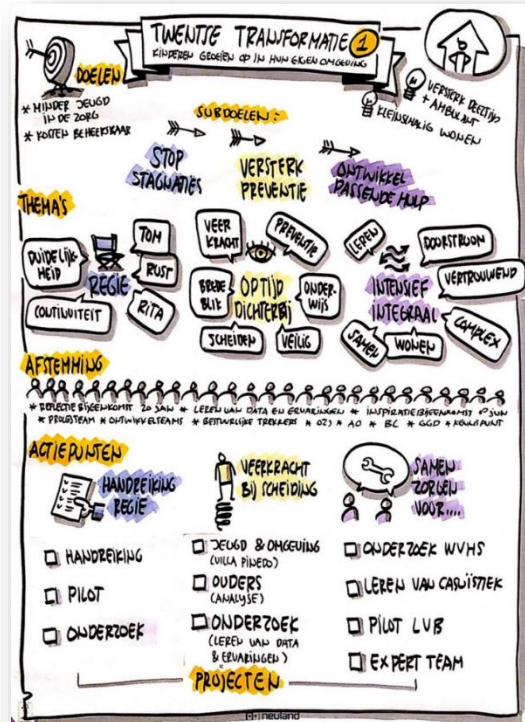 TWENTSE TRANSFORMATIE 1
KINDEREN GROEIEN OP IN HUN EIGEN OMGEVING
DOELEN
* MINDER JEUGD
IN DE ZORG
* KOSTEN BEHEERSBAAR
SUBDOELEN:
VERSTERK DEELTIJD
+ AMBULANT
KLEINSCHALIG WONEN
STOP
STAGNATIES
VERSTERK
PREVENTIE
ONTWIKKEL
PASSENDE HULP
THEMA'S
DUIDELIJK-
HEID
TOM
RUST
REGIE
CONTINUITEIT
RITA
VEER
KRACHT
PREVENTIE
BREDE
BLIK
OP TIJD
DICHTERBIJ
ONDER-
WIJS
SCHEIDEN
VEILIG
LEREN
DOORSTROOM
VERTROUWEND
INTENSIEF
INTEGRAAL
SAMEN
WONEN
COMPLEX
AFSTEMMING
* REFLECTIE BIJEENKOMST 20 JAN * LEREN VAN DATA EN ERVARINGEN * INSPIRATIEBIJEENKOMST JUN
* PROJECTTEAM * ONTWIKKELTEAMS * BESTUURLIJKE TREKKERS * OZJ * AO * BC * GGD * KENNISPUNT
ACTIEPUNTEN
HANDREIKING
REGIE
HANDREIKING
PILOT
ONDERZOEK
VEERKRACHT
BIJ SCHEIDING
JEUGD & OMGEVING
(VILLA PINEDO)
OUDERS
(ANALYSE)
ONDERZOEK
(LEREN VAN DATA
& ERVARINGEN)
SAMEN
ZORGEN
VOOR....
ONDERZOEK WVHS
LEREN VAN CASUÏSTIEK
PILOT LVB
EXPERT TEAM
PROJECTEN
neuland